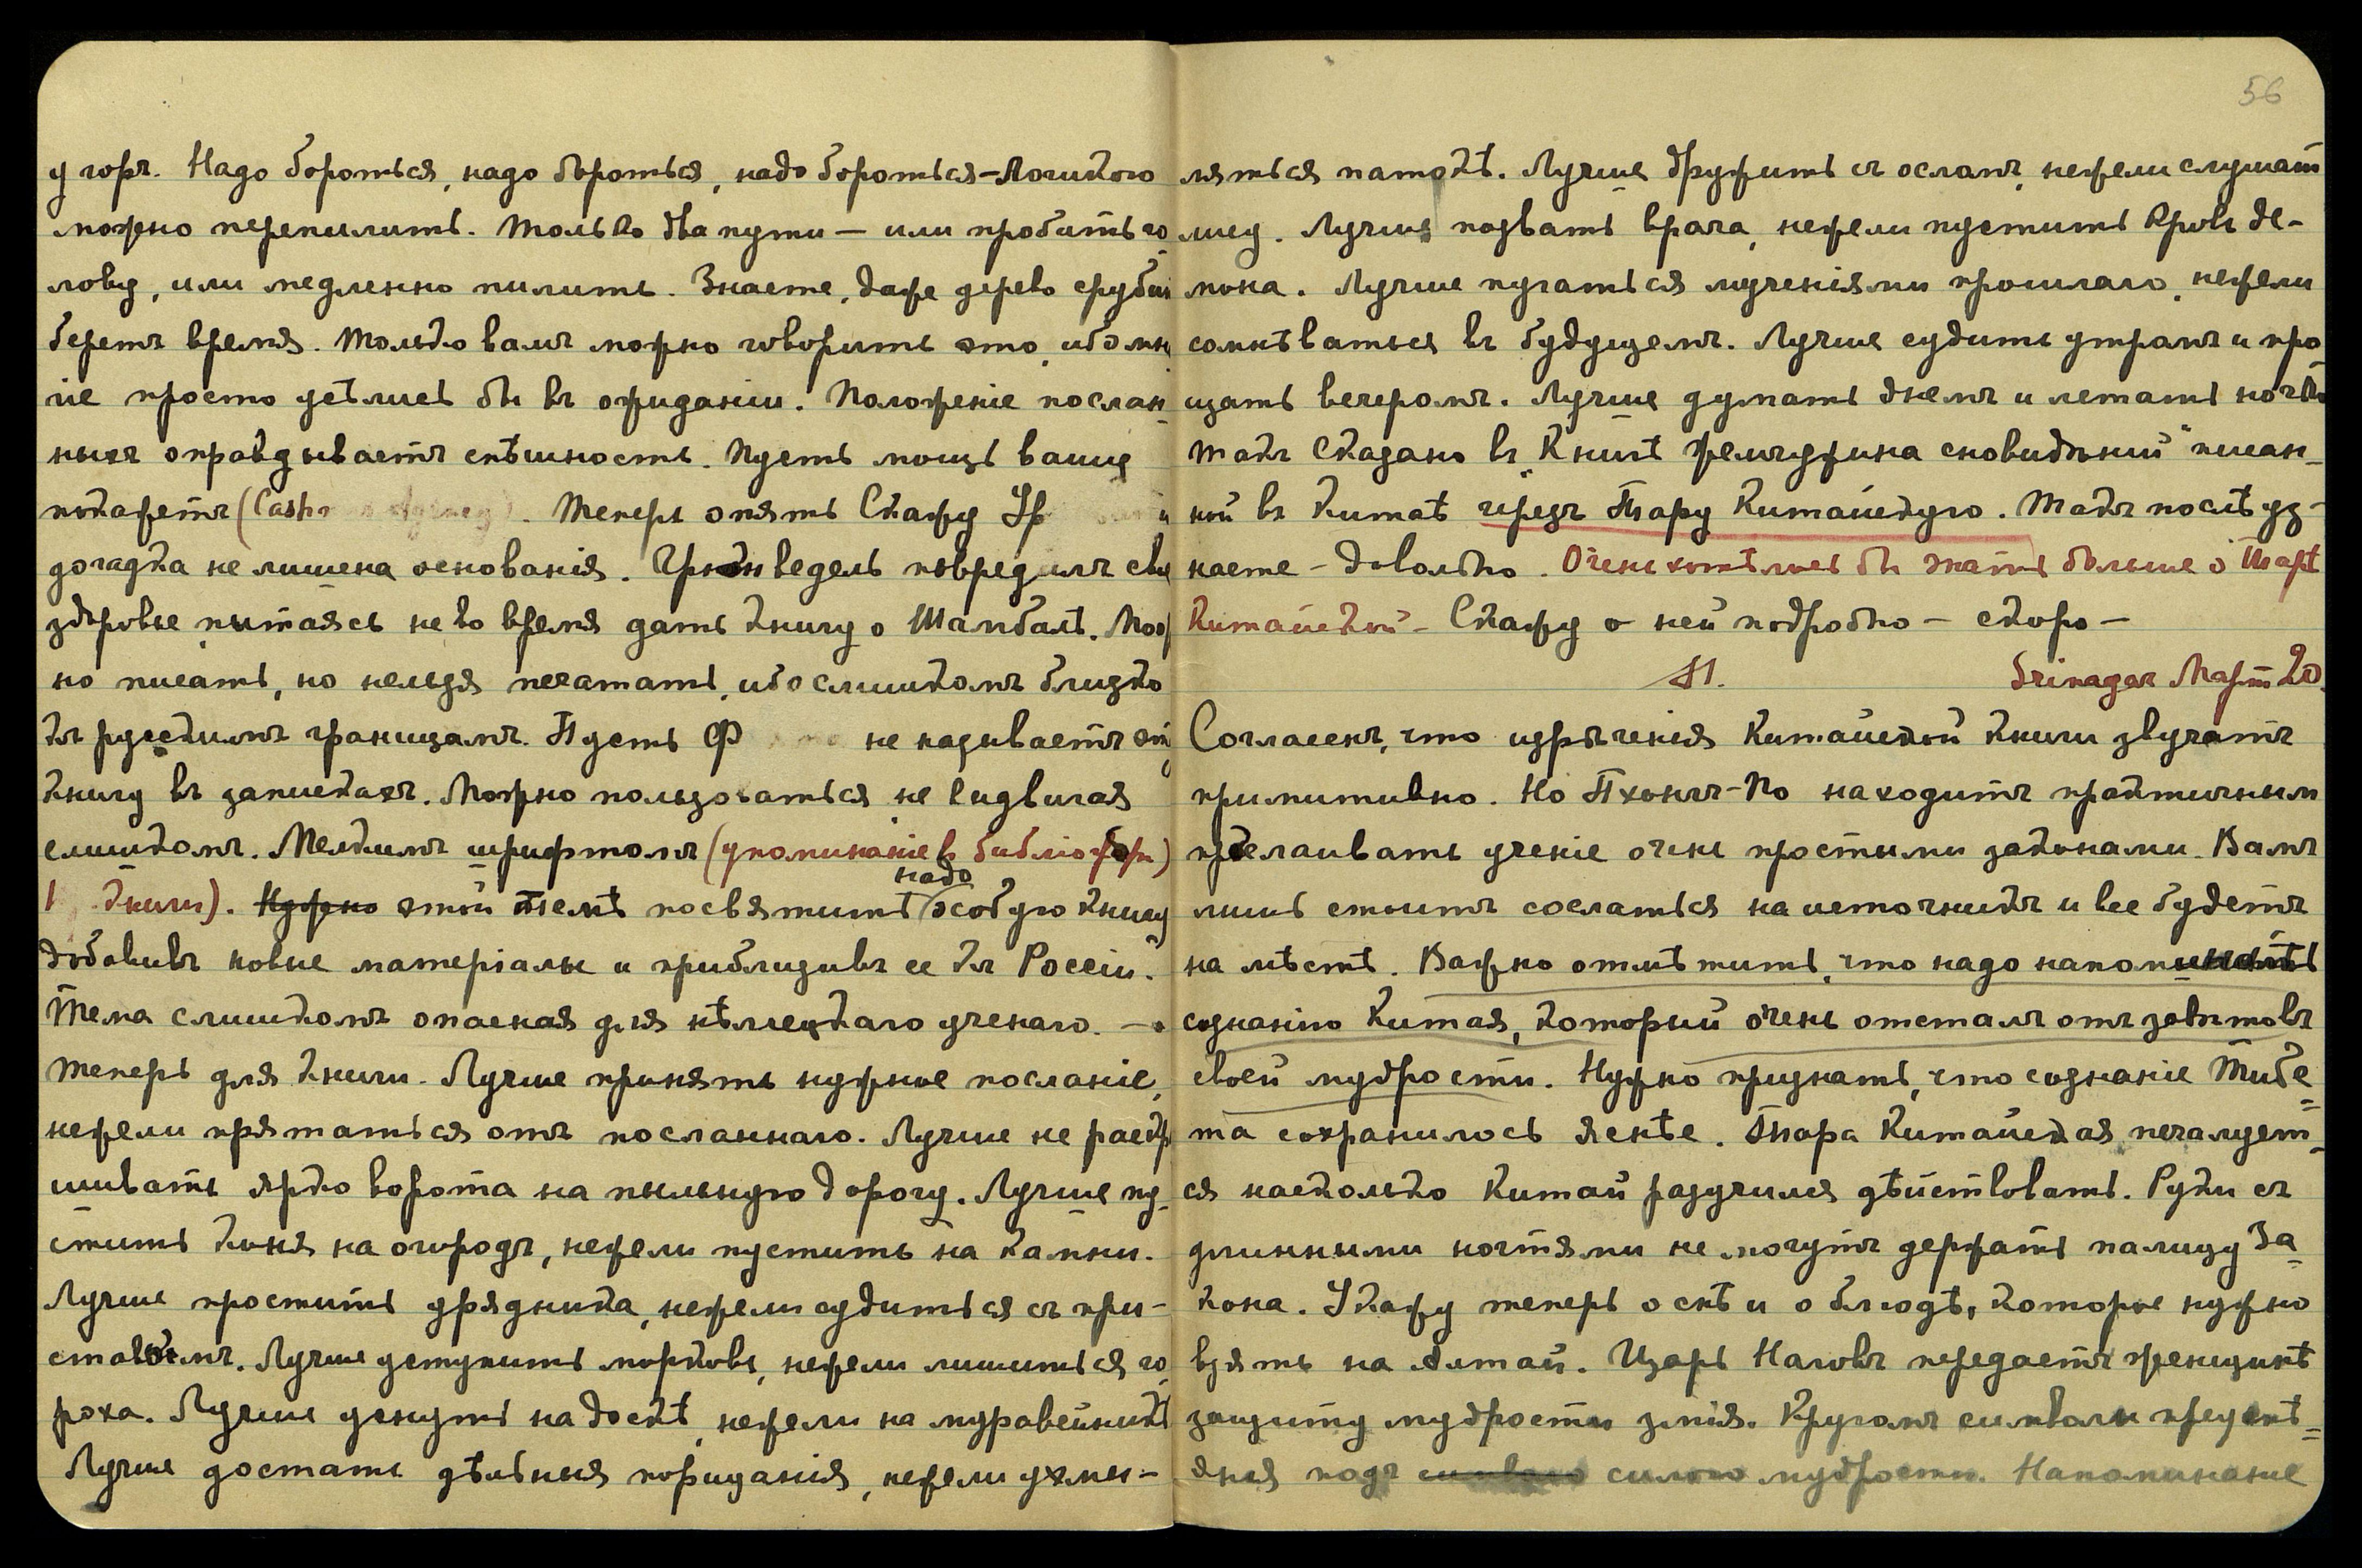 у горъ. Надо бороться, надо бороться, надо бороться – Логикою
можно перепилить. Только два пути – или пробить го
лову, или медленно пилить. Знаете, даже дерево срубить
беретъ время. Только вамъ можно говорить это, ибо мно
гіе просто усѣлись бы въ ожиданіи. Положеніе послан-
ныхъ оправдываетъ спѣшность. Пусть мощь вашу
покажетъ (Cash . Теперь опять Скажу Ур
догадка не лишена основанія. Грюнведель повредилъ свое
здоровье пытаясь не во время дать книгу о Шамбалѣ. Мож
но писать, но нельзя печатать, ибо слишкомъ близко
къ русскимъ границамъ. Пусть Ф не называетъ эту
книгу въ запискахъ. Можно пользоваться не выдвигая
слишкомъ. Мелкимъ шрифтомъ (упоминаніе въ библіограф)
книги). Нужно этой темѣ посвятить надо особую книгу
добавивъ новые матеріалы и приблизивъ ее къ Россіи.
Тема слишкомъ опасная для нѣмецкаго ученаго. –
Теперь для книги. Лучше принять нужное посланіе,
нежели прятаться отъ посланнаго. Лучше не раскр
шивать ярко ворота на пыльную дорогу. Лучше пу-
стить коня на огородъ, нежели пустить на камни.
Лучше простить урядника, нежели судиться съ при-
ставомъ. Лучше уступить морковь, нежели лишиться го
роха. Лучше уснуть на доскѣ, нежели на муравейникѣ
Лучше достать дѣльныя порицанія, нежели ухмы-
56
ляться патокѣ. Лучше дружить съ осломъ, нежели слушать
лису. Лучше позвать врача, нежели пустить кровь де-
мона. Лучше пугаться мученіями прошлаго, нежели
сомнѣваться въ будущемъ. Лучше судить утромъ и про
щать вечеромъ. Лучше думать днемъ и летать ночью
такъ Сказано въ "Книгѣ Жемчужина сновидѣній" писан-
ной въ Китаѣ чрезъ Тару Китайскую. Такъ после уз-
наете – Довольно. Очень хотѣлось бы знать больше о Тарѣ
Китайской – Скажу о ней подробно – скоро –
М. Srinagar Март 20.
Согласенъ, что изрѣченія Китайской книги звучатъ
примитивно. Но Пхонгъ-По находитъ практичнымъ
преслаивать ученіе очень простыми законами. Вамъ
лишь стоитъ сослаться на источникъ и все будетъ
на мѣстѣ. Важно отмѣтить, что надо напоминать
сознанію Китая, который очень отсталъ отъ завѣтовъ
своей мудрости. Нужно признать, что сознаніе Тибе-
та сохранилось яснѣе. Тара Китайская печалует-
ся насколько Китай разучился дѣйствовать. Руки съ
длинными ногтями не могутъ держать палицу За-
кона. Укажу теперь о снѣ и о блюдѣ, которые нужно
взять на Алтай. Царь Наговъ передаетъ женщинѣ
защиту мудрости змія. Кругомъ символы
подъ силою мудрости. Напоминаніе